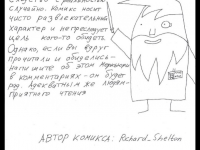 случайно. Комикс носит
чисто развлекательный
характер и непреследует
цель кого-то обидеть
Однако, если вы вдруг
прочитали и обиделись-
напишите об этом
в комментариях - он будет
рад. Адекватным же людям-
приятного чтения
АВТОР КОМИКСА: Richard_Shelton